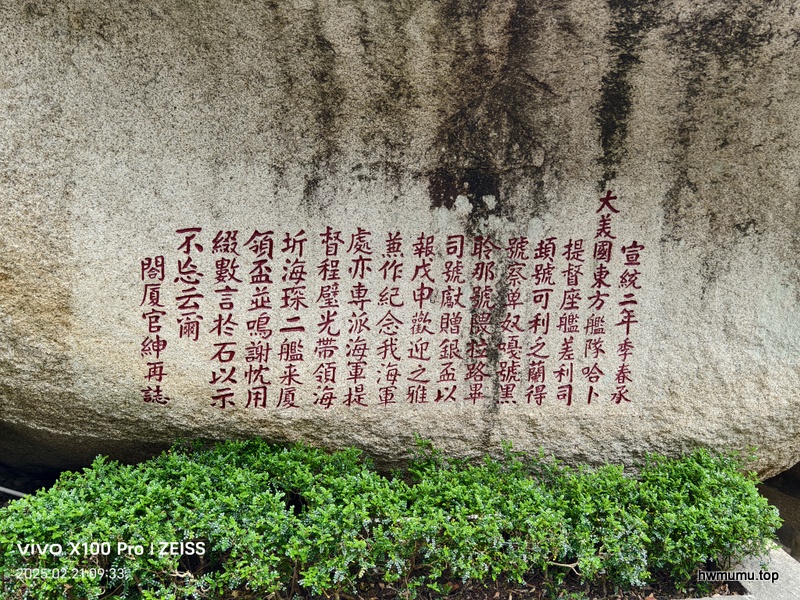 宣統二年季春承
大美國東方艦隊哈卜
提督座艦差利司
頭號可利之蘭得
號察單奴嘎號黑
聆那號隈拉路畢
司號獻贈銀盃以
報戊申歡迎之雅
蒹作紀念我海軍
處亦專派海軍提
督程璧光帶領海
圻海琛二艦来厦
領盃並鳴謝忱用
綴數言於石以示
不忘云爾
閤厦官紳再誌
vivo X100 Pro | ZEISS
2025.02.21 09:33
hwmumu.top